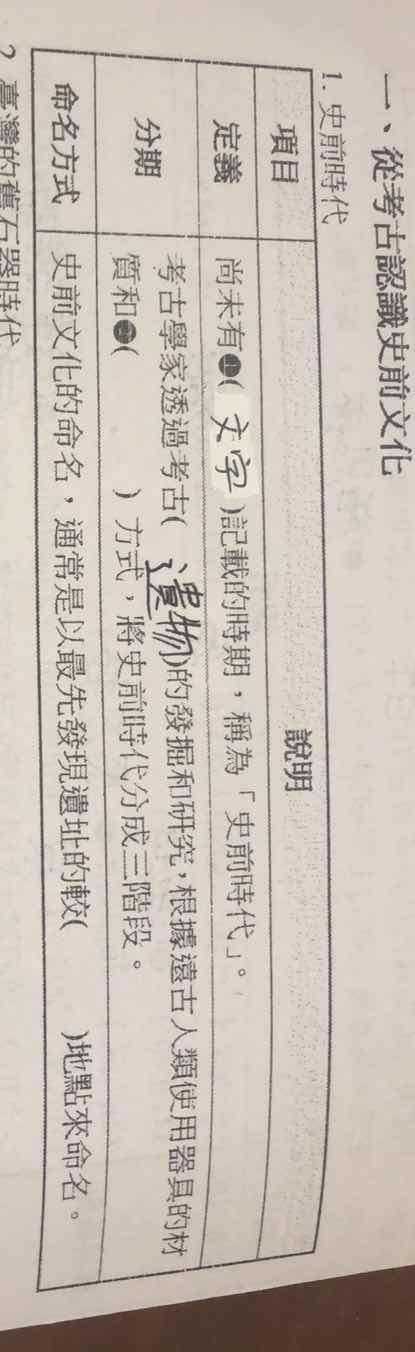 一、從考古認識史前文化
1. 史前時代
項目 說明
定義 尚未有❶( 文字 )記載的時期，稱為「史前時代」。
分期 考古學家透過考古( 遺物 )的發掘和研究，根據遠古人類使用器具的材
質和❷( ) 方式，將史前時代分成三階段。
命名方式 史前文化的命名，通常是以最先發現遺址的較( )地點來命名。
2. 臺灣的舊石器時代